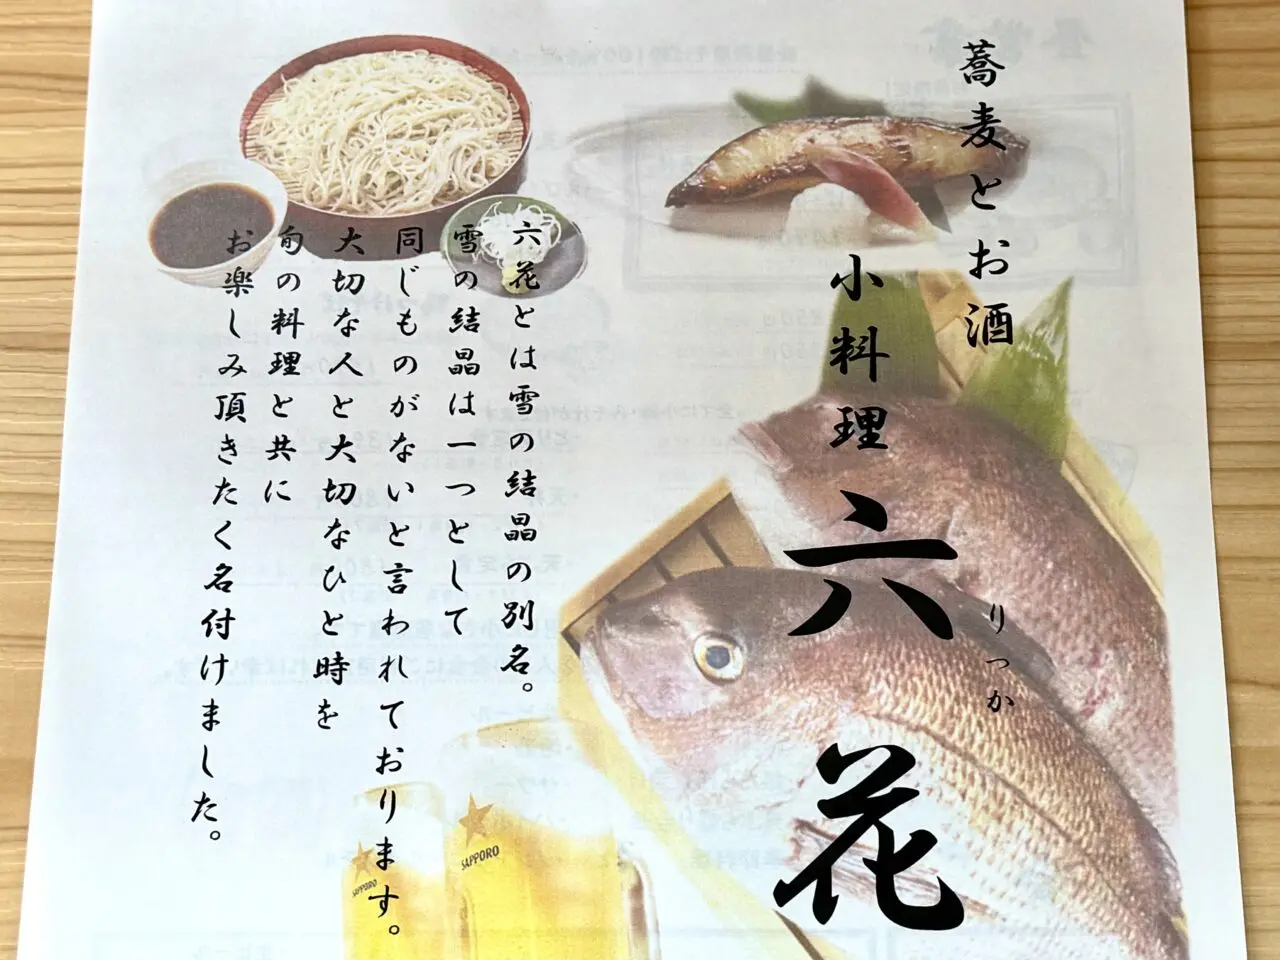 蕎麦とお酒
小料理
六花
りっか
六花とは雪の結晶の別名。
雪の結晶は一つとして
同じものがないと言われております。
大切な人と大切なひと時を
旬の料理と共に
お楽しみ頂きたく名付けました。
SAPPORO
SAPPORO